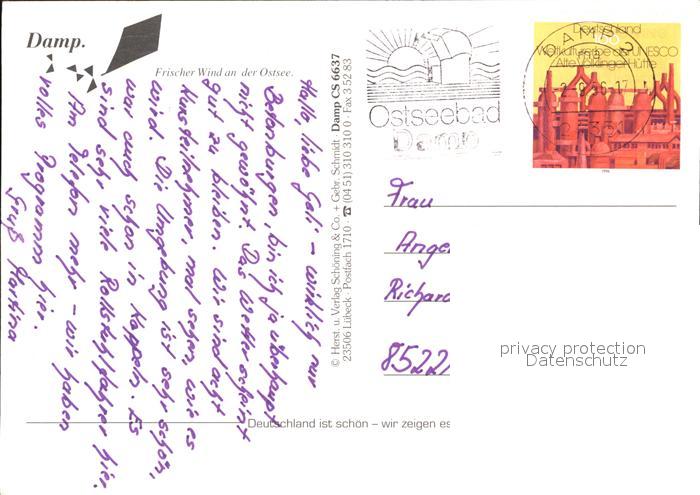 Damp.
Frischer Wind an der Ostsee.
Hallo liebe Geli - wirklich nur
bin ich ja überhaupt
nicht gewohnt. Das Wetter scheint
gut zu bleiben. Wir sind acht
mal sehen, wie es
wird. Die Umgebung ist sehr schön,
wir auch schon in Kappeln. Es
sind sehr viele Rollstuhlfahrer hier.
Am Telefon mehr - wir haben
volles Programm hier.
Gruß Martina
© Herst. u. Verlag Schöning & Co. + Gebr. Schmidt
23506 Lübeck · Postfach 1710 · ☎ (04 51) 310 310 0 · Fax 3 52 83
Damp CS 6637
Ostseebad
Damp
Deutschland
100
Weltkulturerbe der UNESCO
Alte Völklinger Hütte
1996
DAMP
Frau
Ange
Richard
8522
privacy protection
Datenschutz
Deutschland ist schön – wir zeigen es